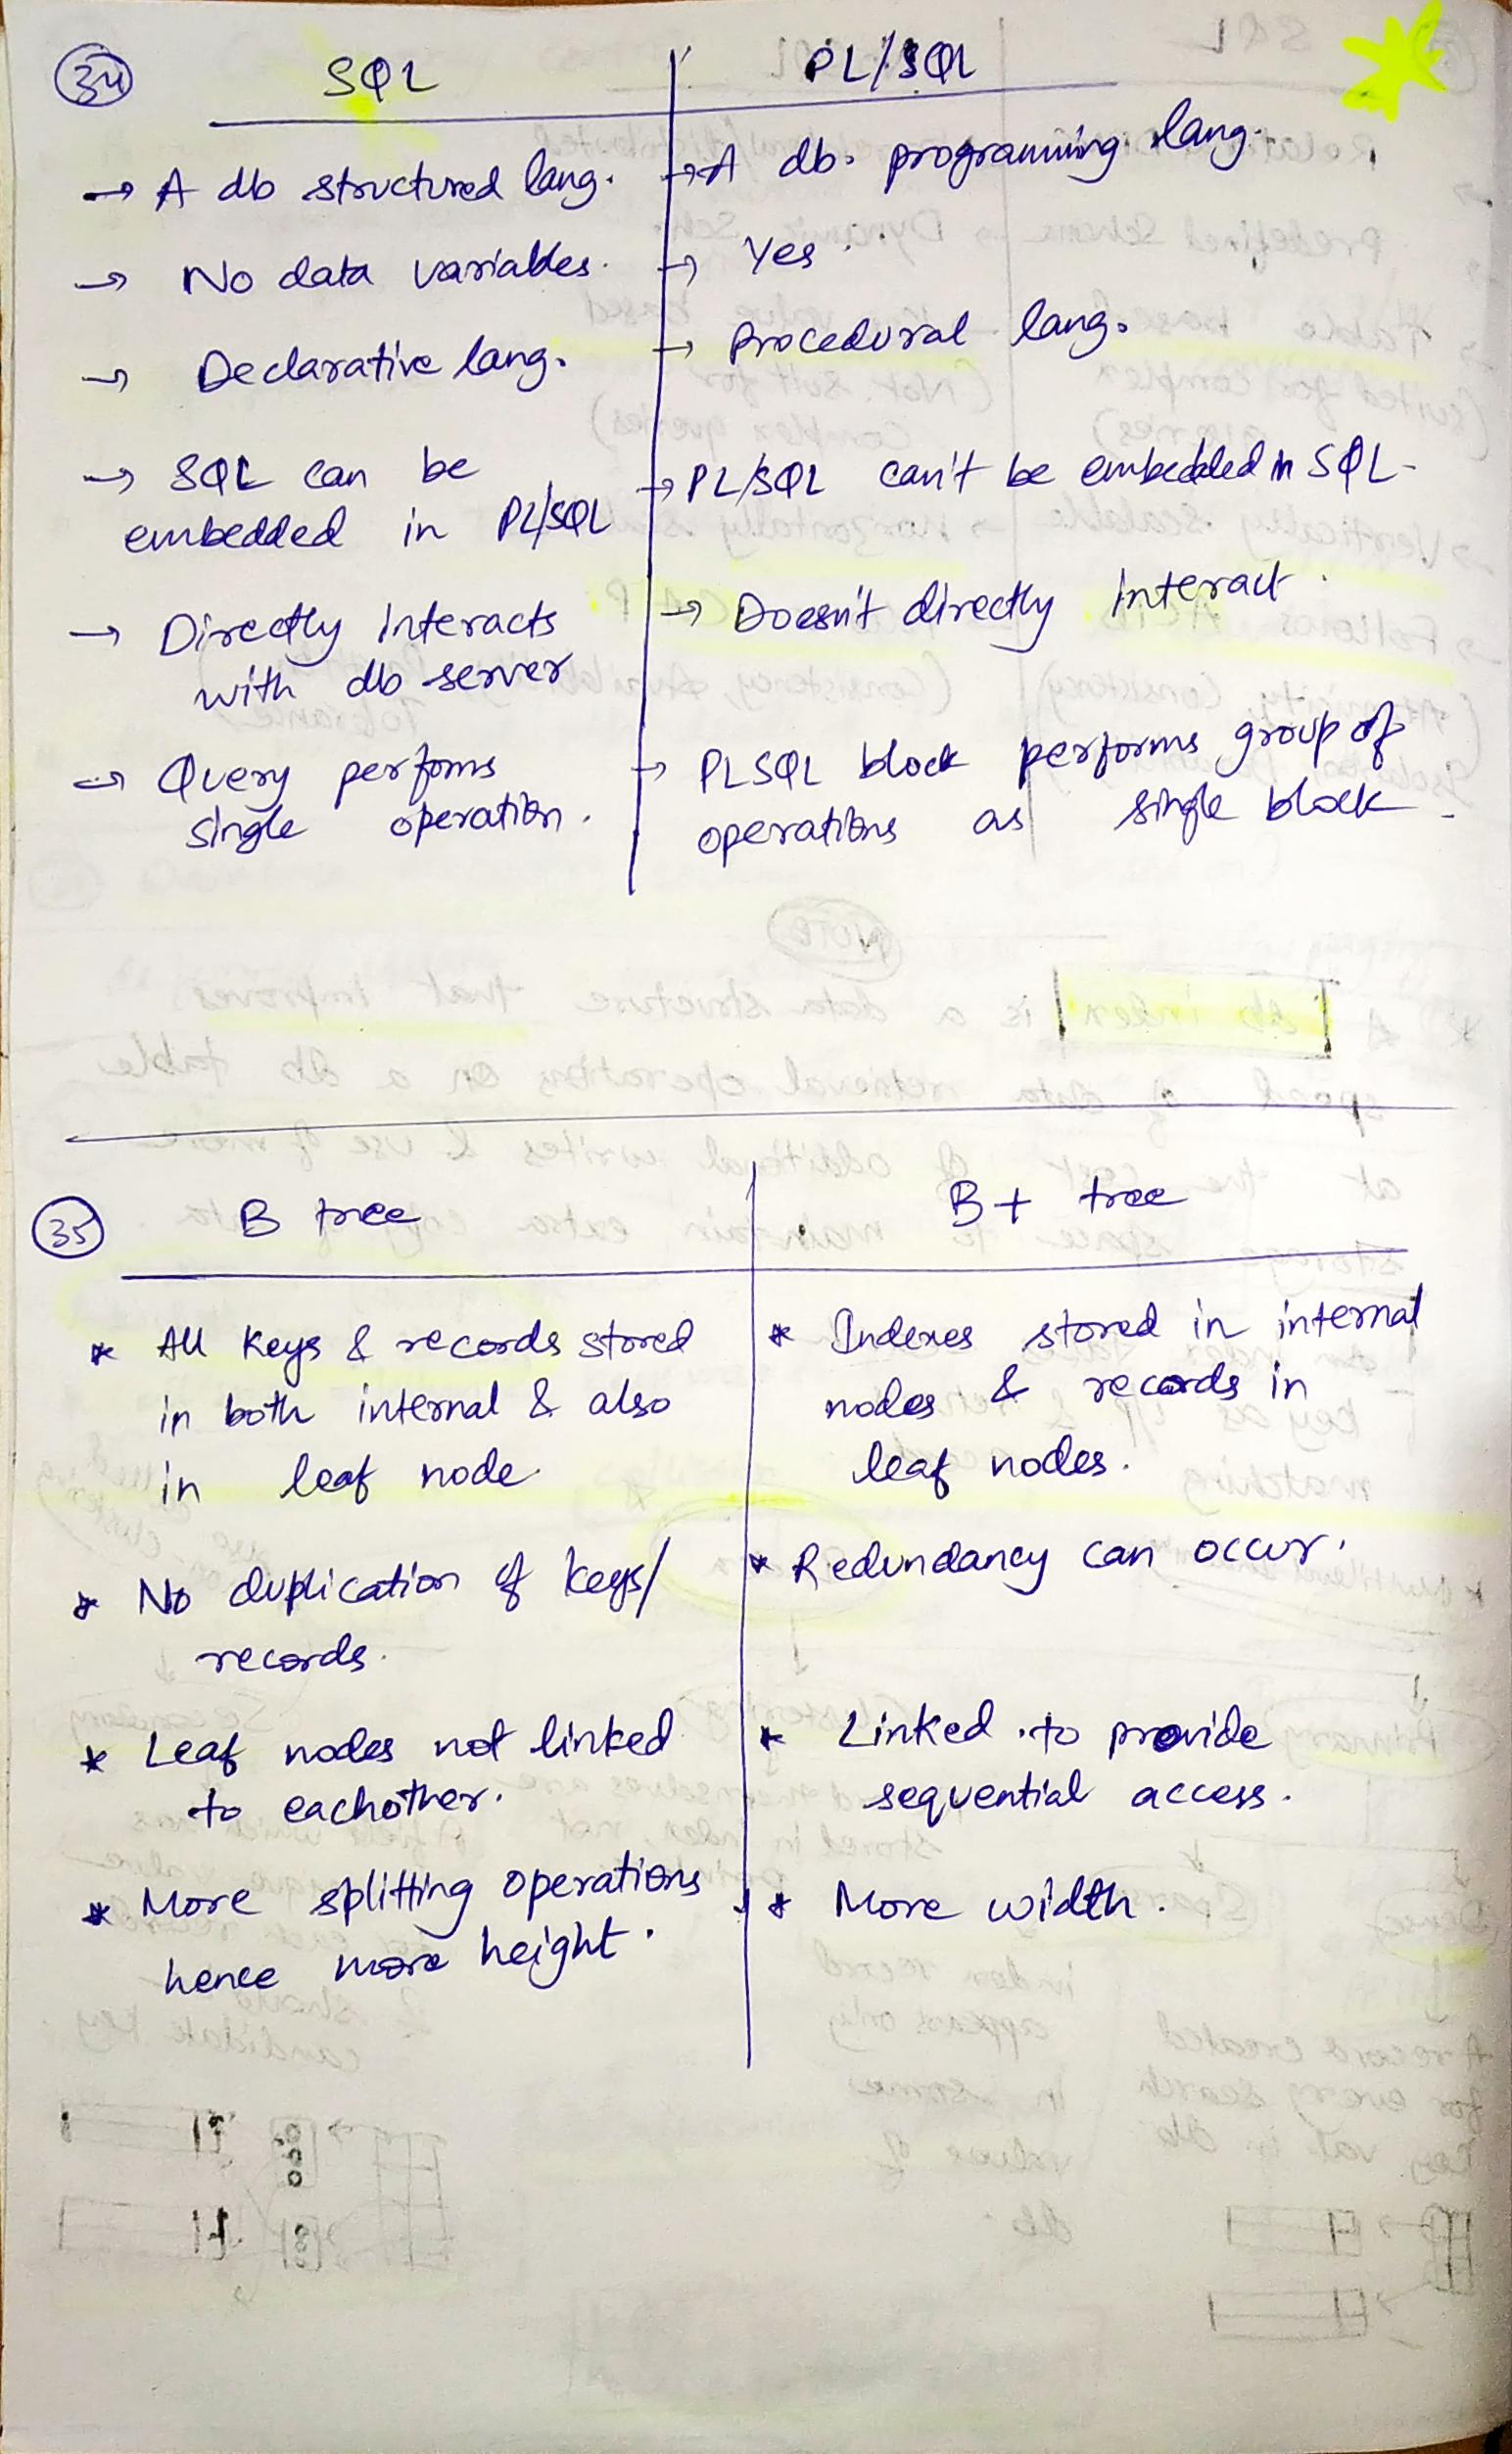 34
SQL
PL/SQL
→ A db structured lang.
→ A db. programming lang.
→ No data variables.
→ Yes.
→ Declarative lang.
→ Procedural lang.
→ SQL can be
embedded in PL/SQL
→ PL/SQL can't be embedded in SQL-
→ Directly Interacts
with db server
→ Doesn't directly Interact.
→ Query performs
single operation.
→ PLSQL block performs group of
operations as single block.
35
B tree
B+ tree
* All keys & records stored
in both internal & also
in leaf node.
* Indexes stored in internal
nodes & records in
leaf nodes.
* No duplication of keys/
records.
* Redundancy can occur.
* Leaf nodes not linked
to eachother.
* Linked to provide
sequential access.
* More splitting operations
hence more height.
* More width.